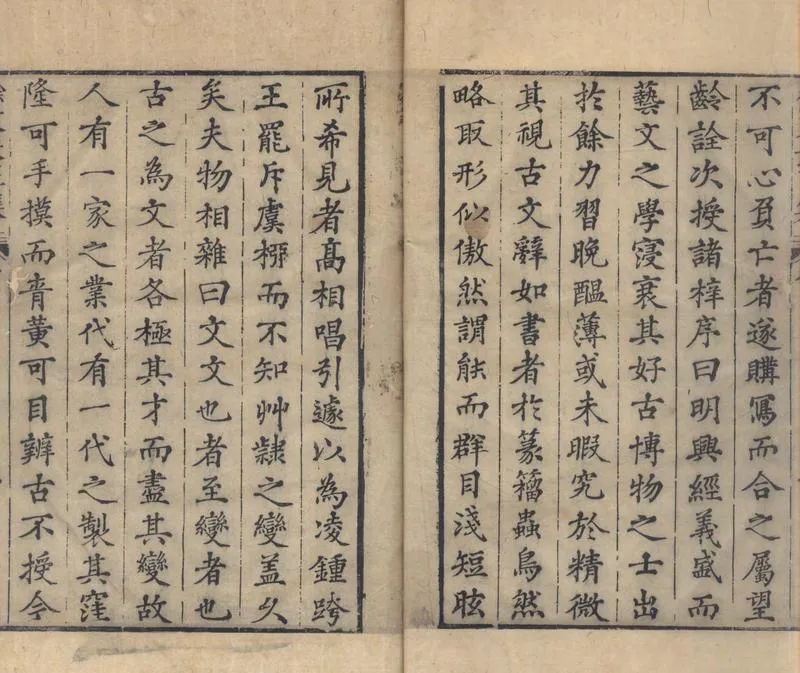 不可心負亡者遂購寫而合之屬望
齡詮次授諸梓序曰明興經義盛而
藝文之學寖衰其好古博物之士出
扵餘力習晚醞薄或未暇究於精微
其視古文辭如書者於篆籀蟲鳥然
略取形似傲然謂能而群目淺短眩
所希見者高相唱引遽以為凌鍾跨
王罷斥虞褚而不知艸隸之變盖久
矣夫物相雜曰文文也者至變者也
古之為文者各極其才而盡其變故
人有一家之業代有一代之製其窪
隆可手摸而青黃可目辨古不授今